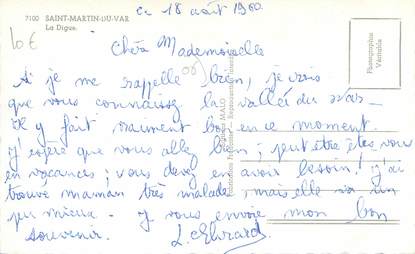 7100 SAINT-MARTIN-DU-VAR
La Digue.
10 €
ce 18 août 1960.
Chère Mademoiselle
Si je me rappelle bien, je crois
que vous connaissez la vallée du Var -
il y fait vraiment bon en ce moment.
J'espère que vous allez bien ; peut être êtes vous
en vacances ; vous devez en avoir besoin ! j'ai
trouvé maman très malade, mais elle va un
peu mieux - Je vous envoie mon bon
souvenir.
Photographie
Véritable